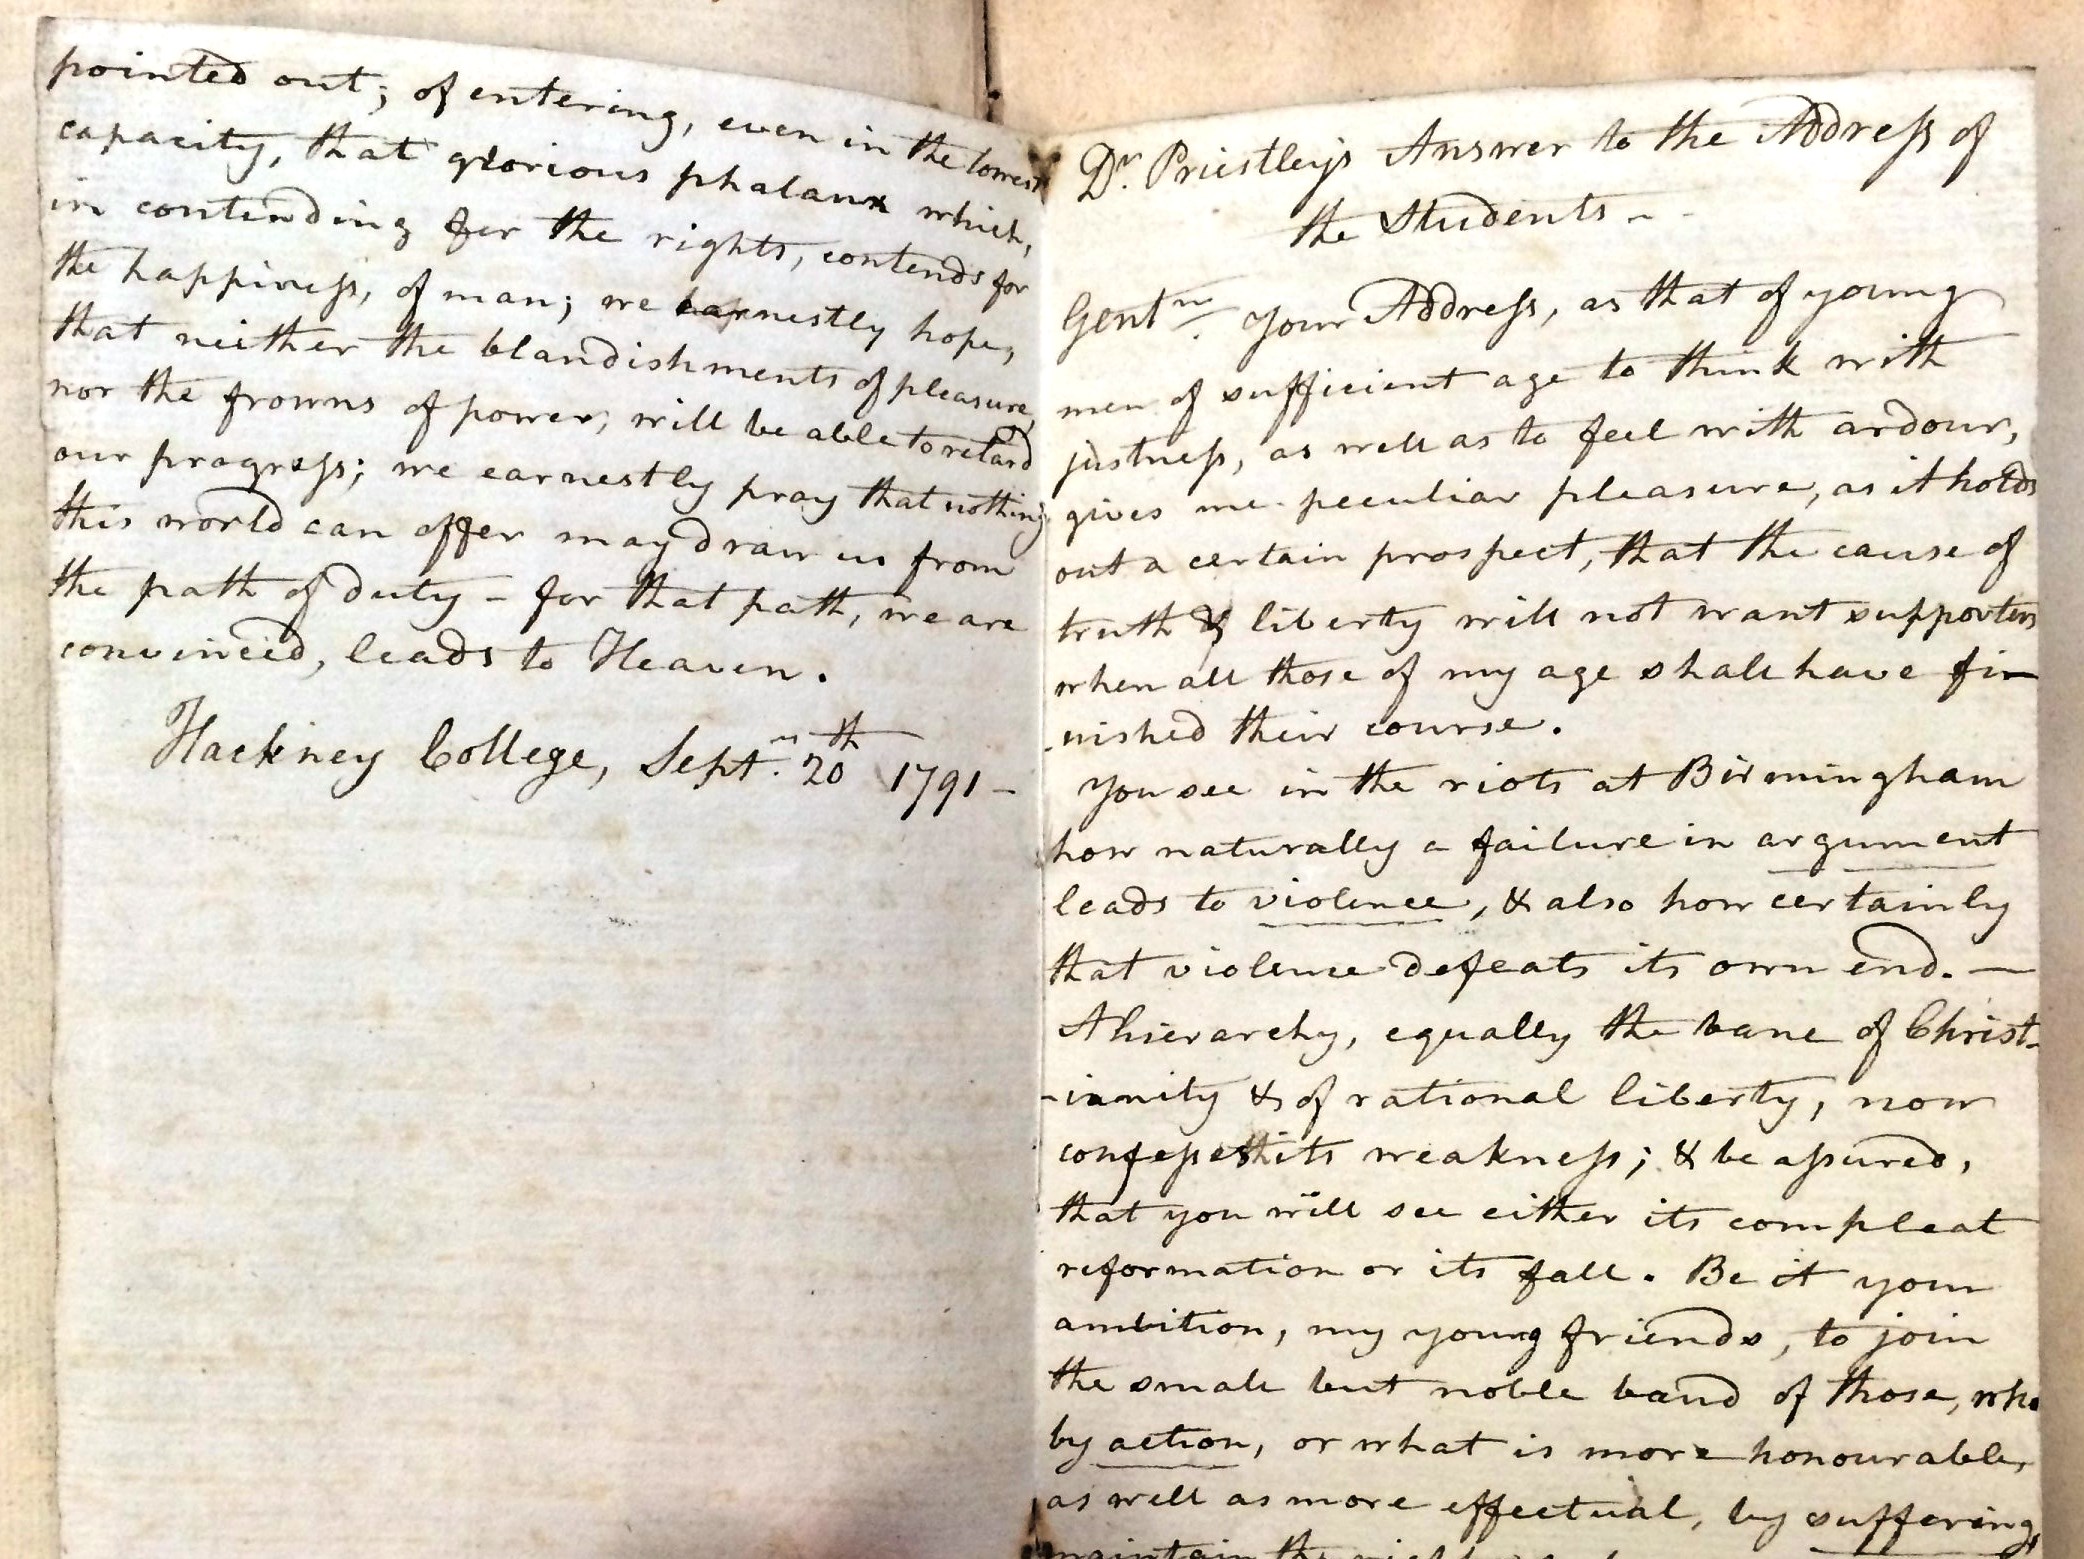 pointed out; of entering, even in the lowest
capacity, that glorious phalanx which,
in contending for the rights, contends for
the happiness, of man; we earnestly hope,
that neither the blandishments of pleasure,
nor the frowns of power, will be able to retard
our progress; we earnestly pray that nothing
this world can offer may draw us from
the path of duty - for that path, we are
convinced, leads to Heaven.
Hackney College, Septr. 20th 1791 -
Dr. Priestley's Answer to the Address of
the Students - -
Gentn. Your Address, as that of young
men of sufficient age to think with
justness, as well as to feel with ardour,
gives me peculiar pleasure, as it holds
out a certain prospect, that the cause of
truth & liberty will not want supporters
when all those of my age shall have fi-
-nished their course.
You see in the riots at Birmingham
how naturally a failure in argument
leads to violence, & also how certainly
that violence defeats its own end. —
A hierarchy, equally the bane of Christ-
-ianity & of rational liberty, now
confesseth its weakness; & be assured,
that you will see either its compleat
reformation or its fall. Be it your
ambition, my young friends, to join
the small but noble band of those, who
by action, or what is more honourable,
as well as more effectual, by suffering,
maintain the